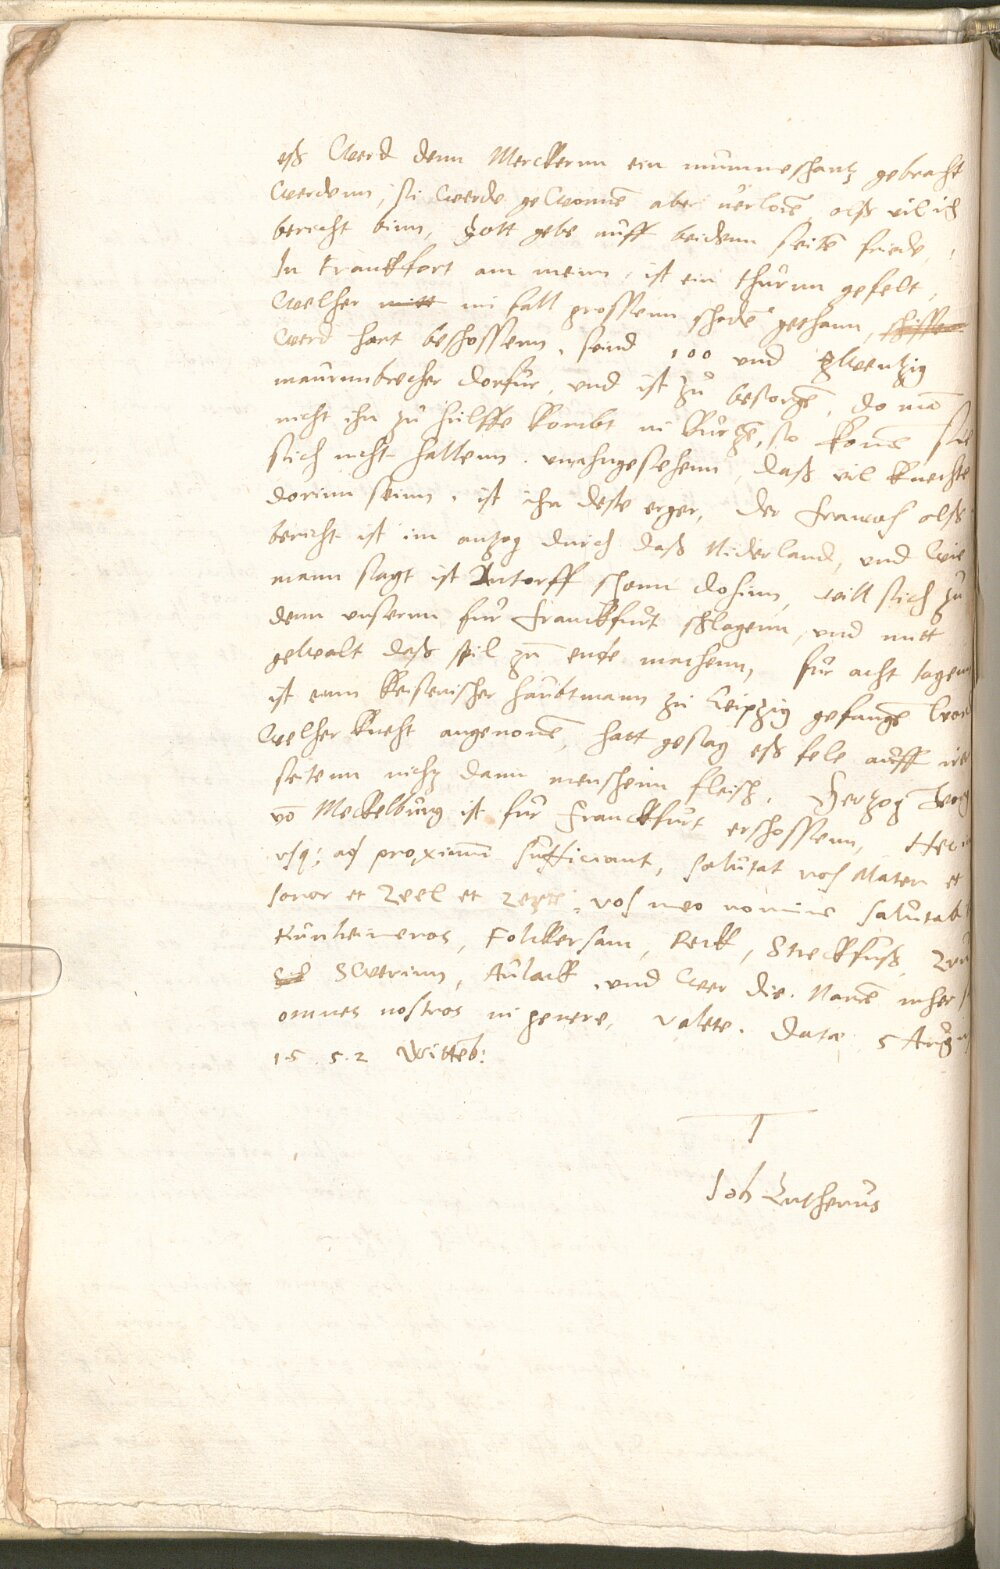 eß werd denn Merckernn ein mummeschantz gebracht
werdenn, si werde gewonnē aber uerlorē, alß vil ich
bericht binn, Gott gebe auff beidenn seitē friede,
In Franckfort am mein, ist ein thurnn gefelt,
welher mitt im fall grossenn schadē gethann,
werd hart beschossenn, send 100 und zwentzig
maurnnbrecher dorfur, und ist zu besorgē, do mā
nicht ihn zu hulffe kombt in kurtzē, so konnē sie
sich nicht haltenn. unahngesehenn, daß vil knechte
dorinn seinn, ist ihn deste erger, der frantzoß alß
bericht ist im antzog durch daß Niderland, und wie
mann sagt ist Antorff schonn dohinn, will sich zu
denn unsernn fur Franckfurt schlagenn, und mitt
gewalt daß spil zu ende machenn, fur acht tagenn
ist einn keiserischer haubtmann zu Leipzig gefangē
welher knecht angenomē, hatt gesag eß fele auff irer
seitenn nichtz dann menschenn fleisch, Hertzog
vō Meckelburg ist fur Franckfurt erschossenn,
usq; ad proximū sufficiant, salutat vos Mater et
soror et Zeel et vos meo nomine
Kunheimeros, Folckersam, Reck, Streckfuß,
Swerinn, Aulack, und wer die. Namē mher
omnes nostros in genere, valete. Datæ 5 Aug
1552 Wittēb:
T
Joh Lutherus